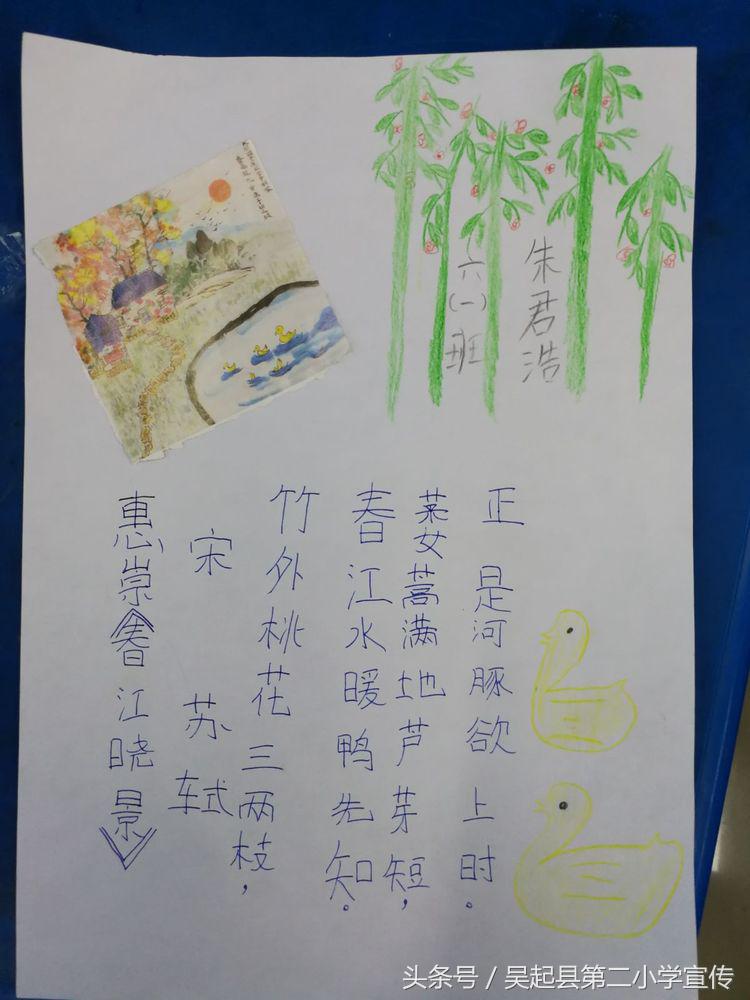 朱君浩
六(一)班
惠崇《春江晓景》
宋 苏轼
竹外桃花三两枝,
春江水暖鸭先知。
蒌蒿满地芦芽短,
正是河豚欲上时。
头条号 / 吴起县第二小学宣传